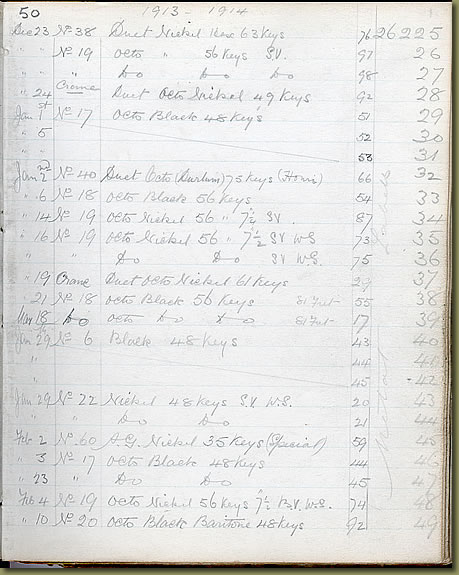 50 1913 - 1914
Dec 23 No 38 Duet Nickel 63 Keys 76 26225
" " No 19 Octo " 56 Keys S.V. 97 26
" " " Do Do Do 98 27
" 24 Crane Duet Octo Nickel 49 Keys 92 28
Jan 1st No 17 Octo Black 48 Keys 51 29
" 5 52 30
" " 53 31
Jan 2nd No 40 Duet Octo 75 Keys 66 32
" 6 No 18 Octo Black 56 Keys 54 33
" 14 No 19 Octo Nickel 56 " 7¼ SV. 87 34
" 16 No 19 Octo Nickel 56 " 7½ SV W.S 73 35
" " Do Do SV W.S. 75 36
" 19 Crane Duet Octo Nickel 61 Keys 29 37
" 21 No 18 Octo Black 56 Keys 55 38
18 Do Octo Do Do 17 39
Jan 29 No 6 Black 48 Keys 43 40
" 44
" 45 42
Jan 29 No 22 Nickel 48 Keys S.V. W.S. 20 43
" " Do Do 21 44
Feb 2 No 60 A.G. Nickel 35 Keys (Special) 59 45
" 3 No 17 Octo Black 48 Keys 44 46
" 23 " Do Do 45 47
Feb 4 No 19 Octo Nickel 56 Keys 7½ B.V. W.S. 74 48
" 10 No 20 Octo Black Baritone 48 Keys 92 49